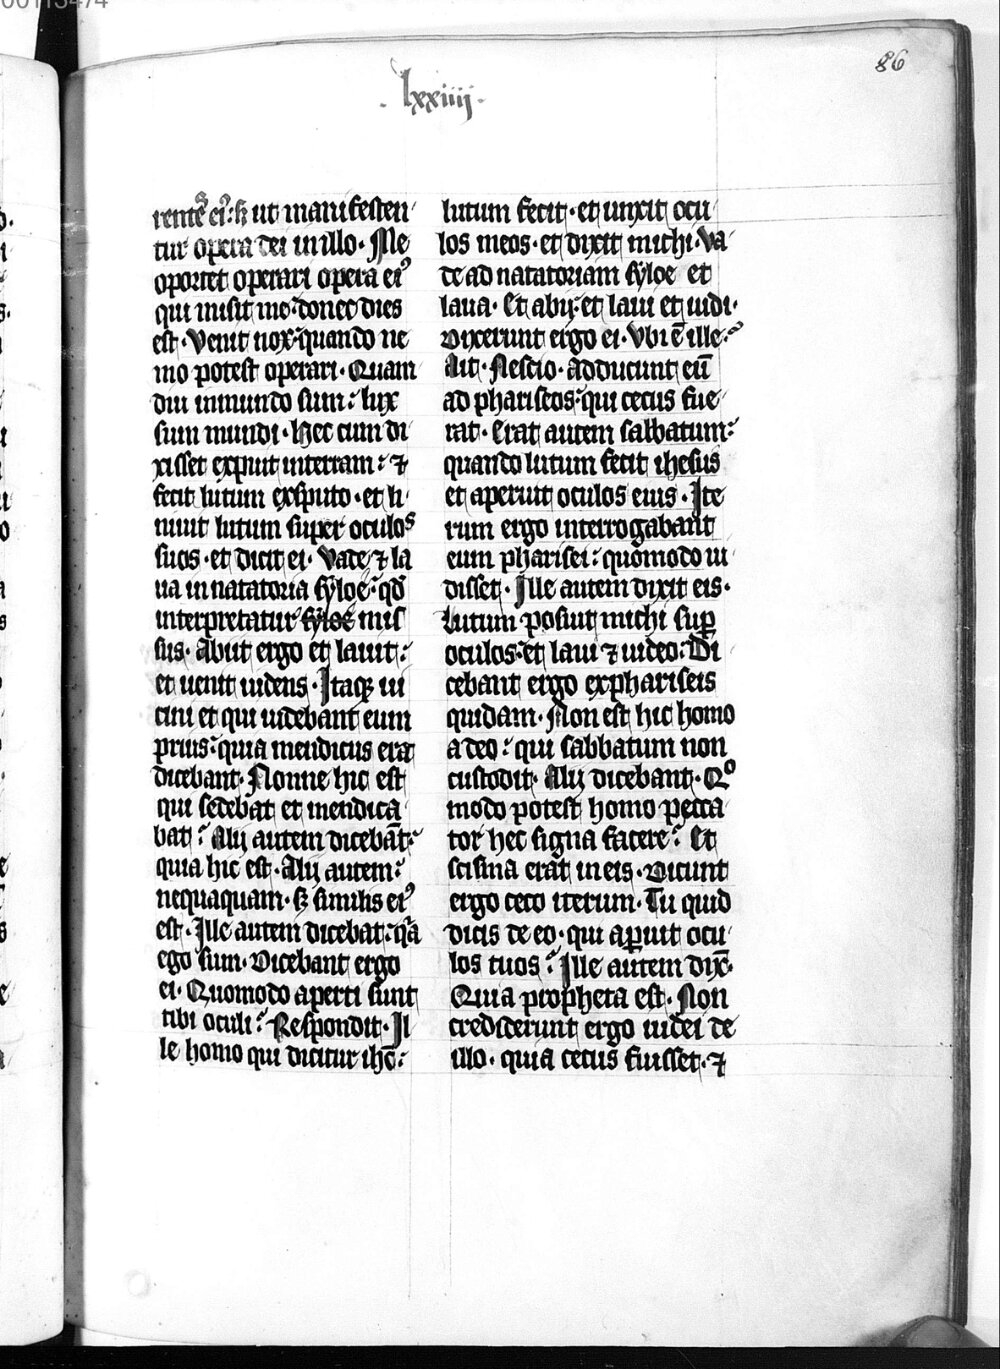 00113474
86
. lxxiiii .
rentes ei᷒: ſꝫ ut manifeſten
tur opera dei in illo. Me
oportet operari opera ei᷒
qui miſit me: donec dies
eſt. Venit nox: quando ne
mo poteſt operari. Quam
diu in mundo ſum: lux
ſum mundi. Hec cum di
xiſſet expuit in terram: ⁊
fecit lutum ex ſputo. et li
niuit lutum ſuper oculos
ſuos. et dicit ei. Vade ⁊ la
ua in natatoria ſyloe: qd̄
interpretatur ſyloe miſ
ſus. Abiit ergo et lauit:
et uenit uidens. Itaqꝫ ui
cini et qui uidebant eum
prius: quia mendicus erat
dicebant. Nonne hic eſt
qui ſedebat et mendica
bat? Alij autem dicebāt:
quia hic eſt. Alij autem:
nequaquam. ſꝫ ſimilis ei᷒
eſt. Ille autem dicebat: qͣa
ego ſum. Dicebant ergo
ei. Quomodo aperti ſunt
tibi oculi? Reſpondit. Il
le homo qui dicitur ihc̄:
lutum fecit. et unxit ocu
los meos. et dixit michi. Va
de ad natatoriam ſyloe et
laua. Et abij: et laui et uidi.
Dixerunt ergo ei. Vbi ē ille?
Ait. Neſcio. Adducunt eū
ad phariſeos: qui cecus fue
rat. Erat autem ſabbatum:
quando lutum fecit iheſus
et aperuit oculos eius. Ite
rum ergo interrogabant
eum phariſei: quomodo ui
diſſet. Ille autem dixit eis.
Lutum poſuit michi ſuꝑ
oculos: et laui ⁊ uideo. Di
cebant ergo ex phariſeis
quidam. Non eſt hic homo
a deo: qui ſabbatum non
cuſtodit. Alij dicebant. Qͦ
modo poteſt homo pecca
tor hec ſigna facere? Et
ſciſma erat in eis. Dicunt
ergo ceco iterum. Tu quid
dicis de eo. qui aꝑuit ocu
los tuos? Ille autem dix̄.
Quia propheta eſt. Non
crediderunt ergo iudei de
illo. quia cecus fuiſſet. ⁊